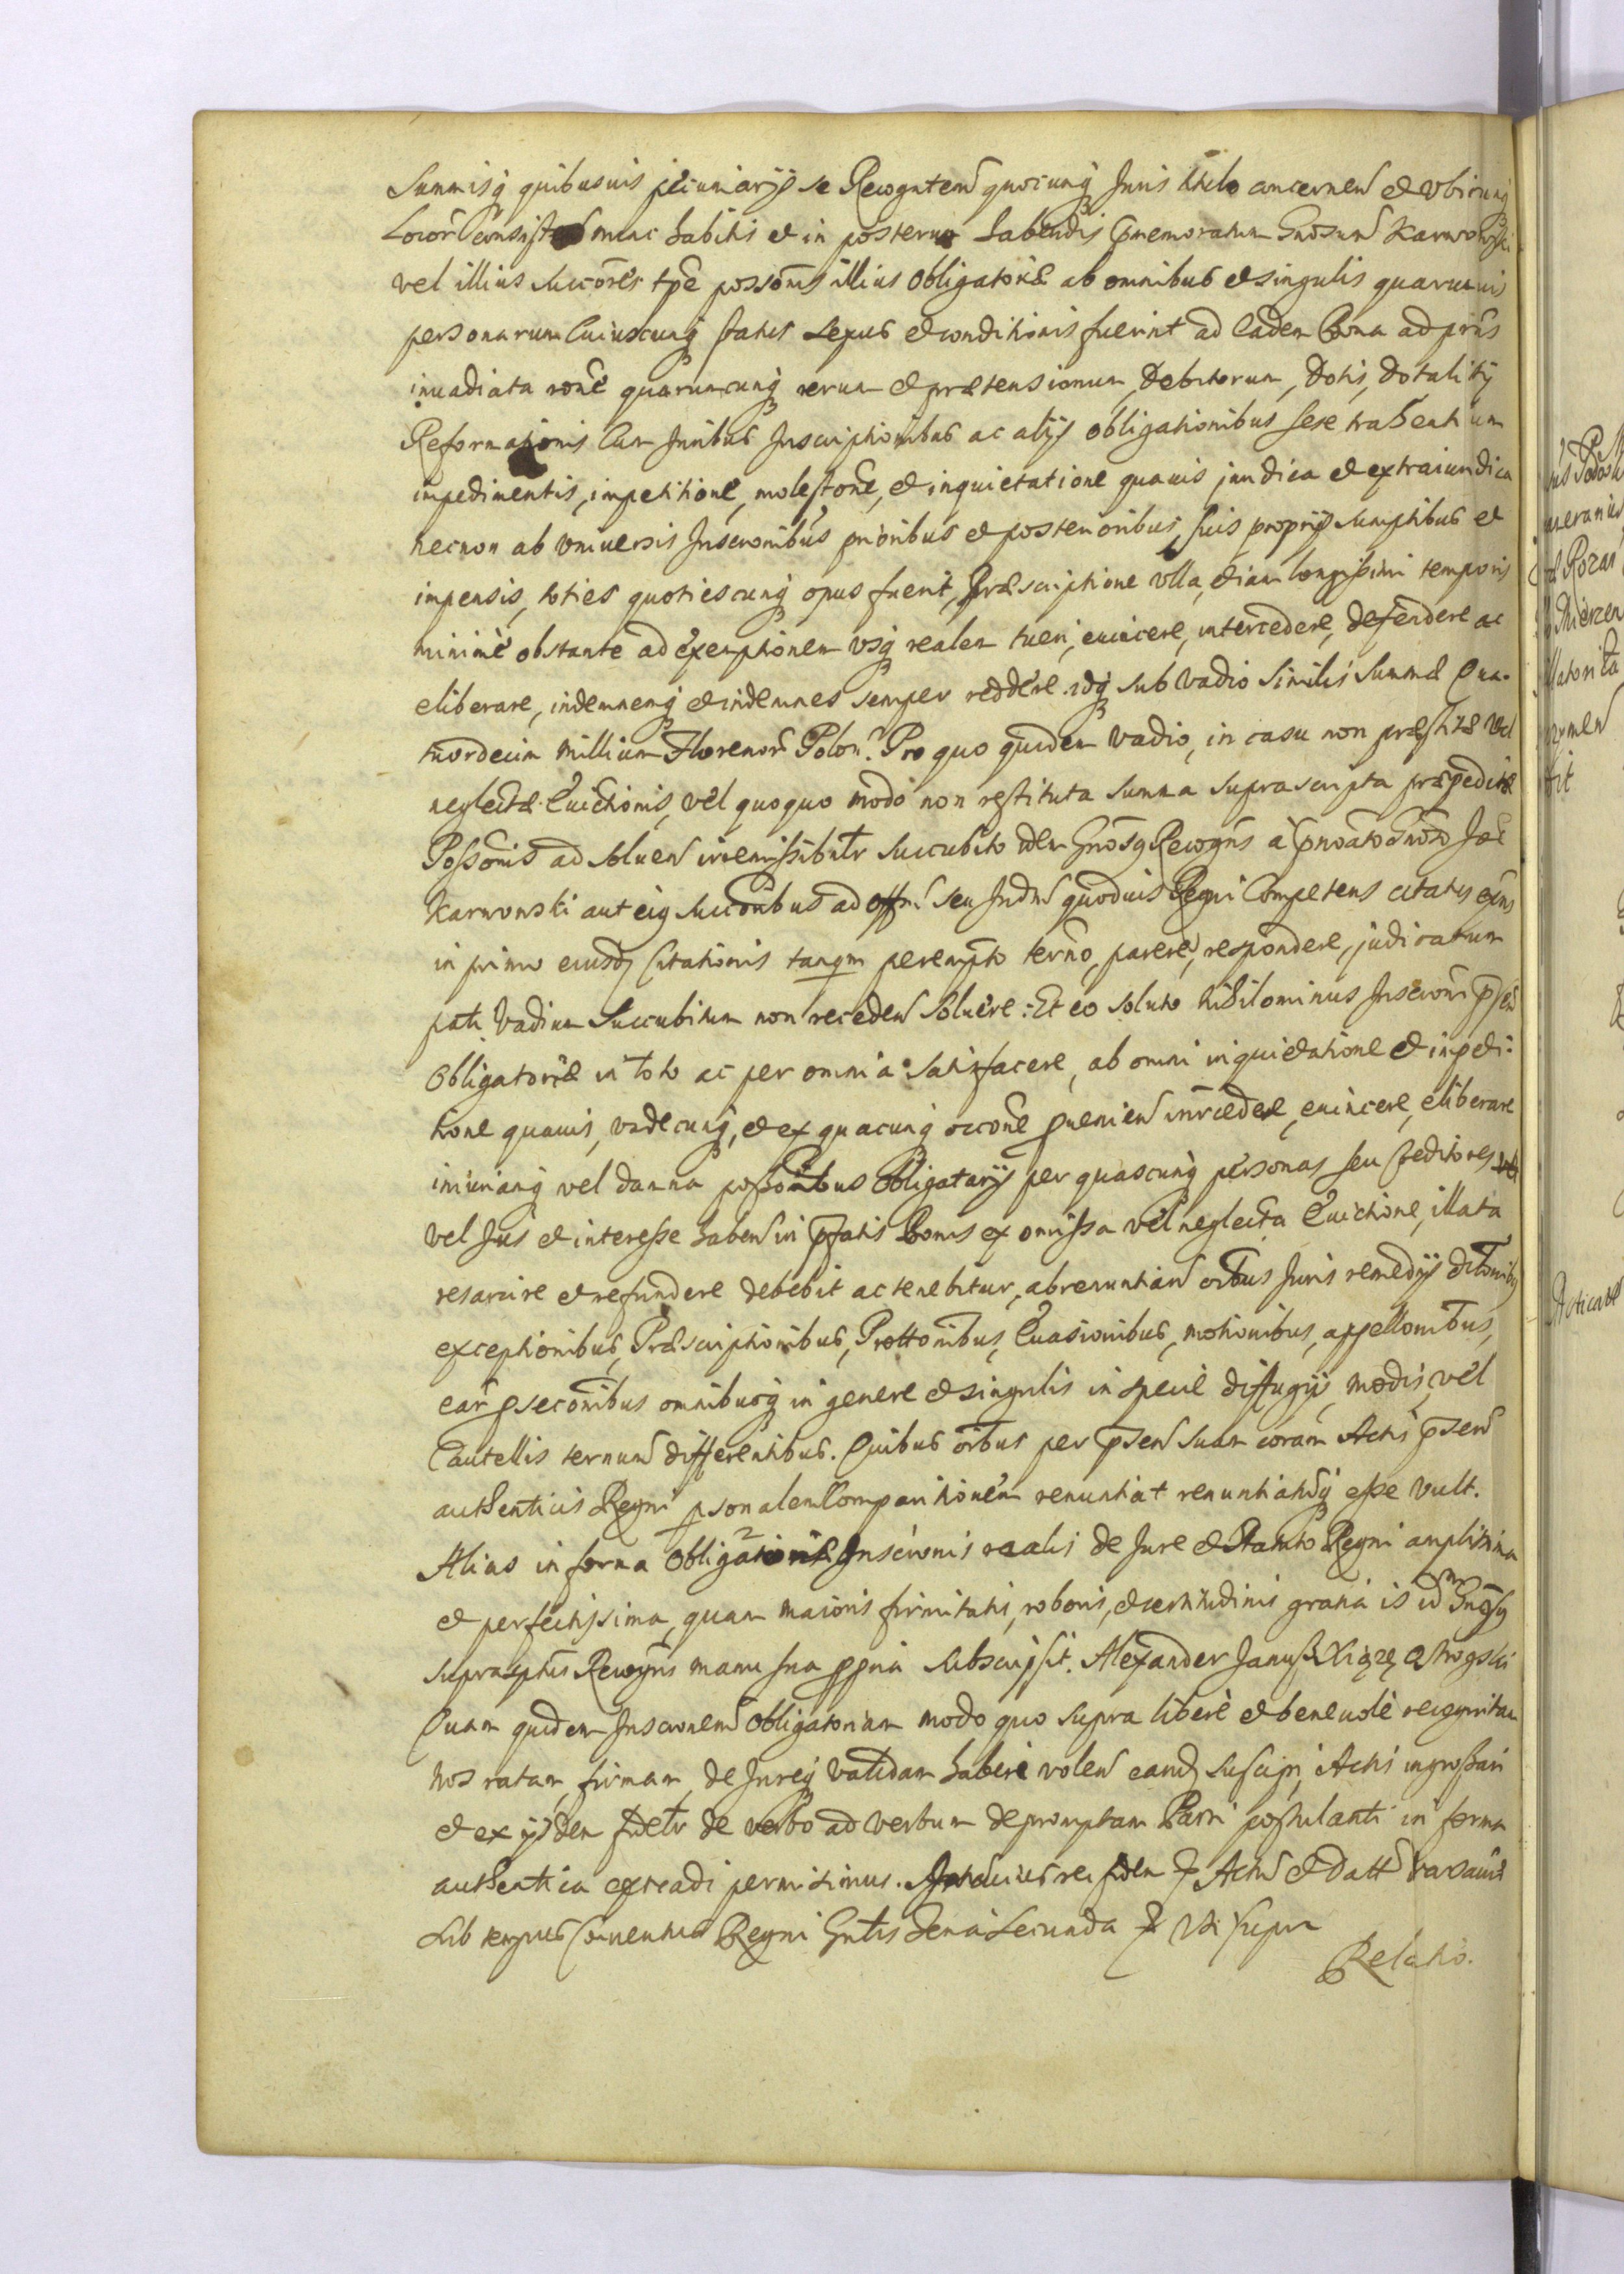 Summisq quibusuis pecuniarys se Recognten quocunq Juris titulo concernen et vbicunq
Locor consisten nunc habitis et in posterum habendis Prnemoratum Gnosum Karwowski
vel illius succores tpe possonis illius obligatoriæ ab omnibus et singulis quarumuis
personarum Cuiuscunq status sexus et conditionis fuerint ad Eadem Bona ad prns
inuadiata rone quarumcunq rerum et prætensionum, Debitorum, Dotis, Dotalitij
Reformationis Cum Juribus Inscriptionibus ac alijs obligationibus sese trahentium
impedimentis, impetitione, molestone, et inquietatione quauis juridica et extraiuridica
necnon ab vniuersis Inscronibus prioribus et posterioribus, suis proprijs sumptibus et
impensis, toties quotiescunq opus fuerit, Præscriptione vlla, etiam longissimi temporis
minime obstante ad exemptionem vsq realem tueri, euincere, intercedere, defendere ac
eliberare, indemnemq et indemnes semper reddere. idq sub vadio similis summæ Qua-
tuordecim Millium Florenor Polon. Pro quo quidem vadio, in casu non præstitæ vel
neglectæ Euictionis, vel quoquo modo non restituta summa suprascripta præpeditæ
Possonis ad soluen irremissibiltr succubito idem Gnosq Recogns a prnoato Gnoso Joe
Karwowski aut eiq succoribus ad offm seu Judm quoduis Regni Competens citatus eptns
in primo eiusdq Citationis tanqm perempto termo, parere, respondere, judicatum
pati Vadium Succubitum non receden soluere: Et eo soluto nihilominus Inscroni pnti
Obligatoriæ in toto ac per omnia satisfacere, ab omni inquietatione et impeti-
tione quauis, vndecunq, et ex quacunq occone puenien intrcedere, euincere, eliberare
iniuriamq vel damna possoribus obligatarijs per quascunq personas seu Creditores
vel Jus et interesse haben in pfatis Bonis ex omissa vel neglecta Euictione, illata
resarcire et refundere debebit ac tenebitur, abrenuntian oibus Juris remedijs dilonibq
exceptionibus, Præscriptionibus, Prottonibus, Euasionibus, motionibus, appellonibus,
ear psecoribus omnibusq in genere et singulis in specie diffugijs, modis, vel
Cautellis ternum differentibus. Quibus oibus per psen suam coram Actis psen
authenticis Regni psonalem Comparitionem renuntiat renuntiatusq esse vult.
Alias in forma Obligatoriæ Inscronis realis de Jure et Statuto Regni amplissima
et perfectissima, quam maioris firmitatis, roboris, et certitudinis gratia is id Gnosq
suprasptus Recogns manu sua ppria subscripsit. Alexander Janusz Xiązę Ostrogski
Quam quidem Inscronem Obligatoriam modo quo supra libere et beneuole recognitam
nos ratam, firmam, de Jureq validam habere volen eandq suscipi, Actis ingrossari
et ex ijsdem fidetr de verbo ad verbum depromptam Parti postulanti in forma
authentica extradi permisimus. In cuius rei fidem & Actum et Datt Varsauiæ
sub tempus Conuentus Regni Gntis Feria Secunda & Vti supra
Relatio.